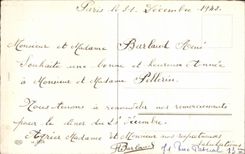 Paris le 31 Décembre 1942.
Monsieur et Madame Burlaud René
Souhaite une bonne et heureuse Année
à Monsieur et Madame Pellerin
Nous tenons à renouveler nos remerciements
pour le du Décembre
Agréer Madame et Monsieur nos respectueuses
salutations
Burlaud